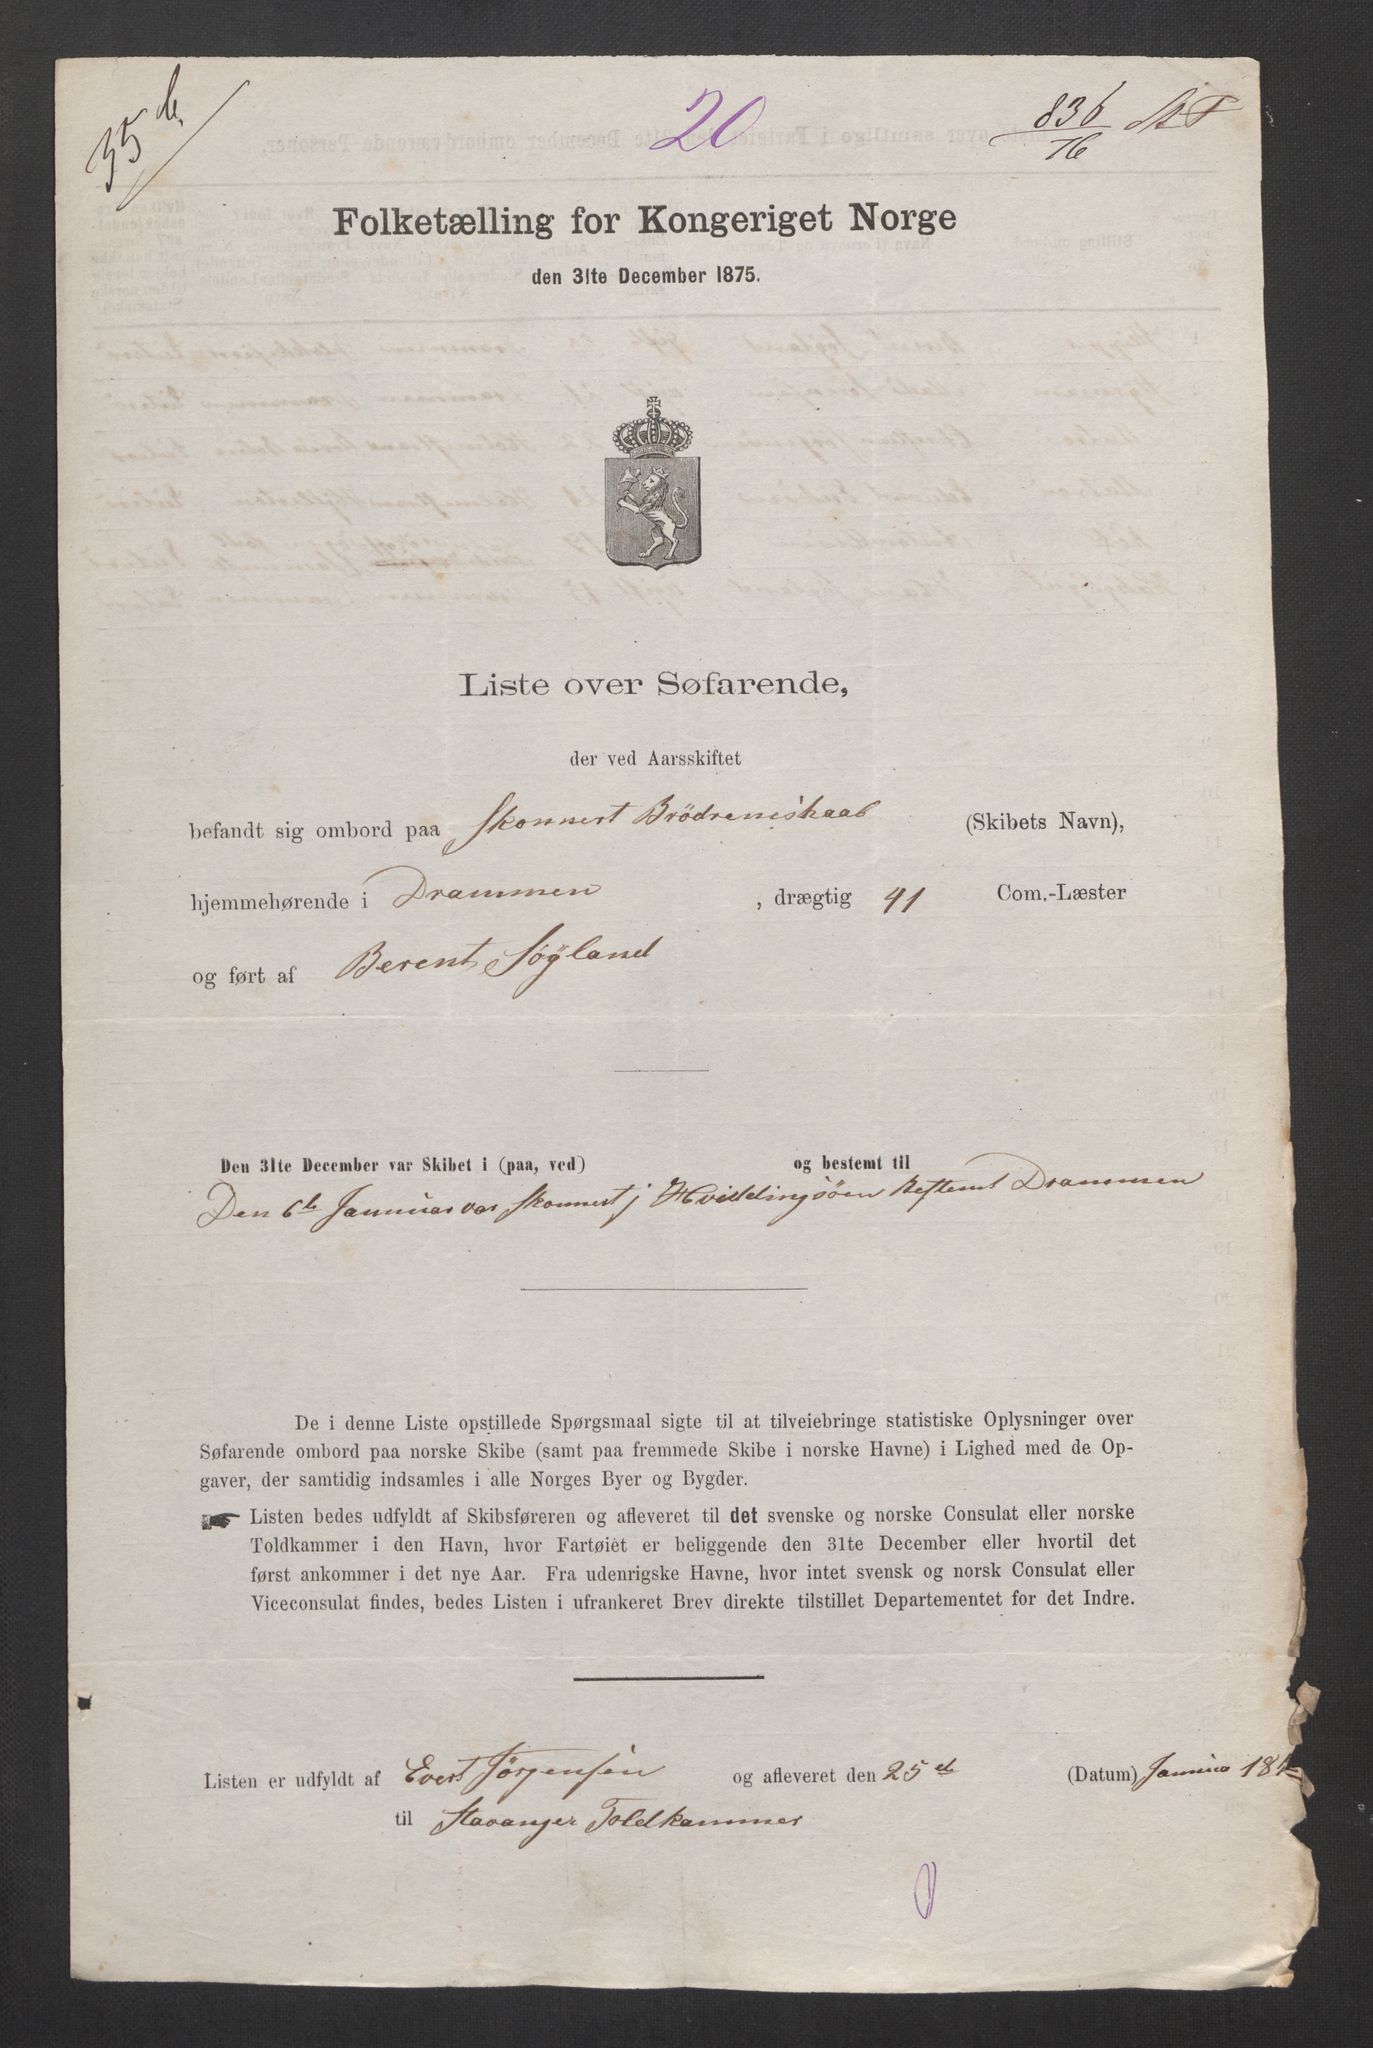 35 d.
20
836
16
Folketælling for Kongeriget Norge
den 31te December 1875.
Liste over Søfarende,
der ved Aarsskiftet
befandt sig ombord paa Skonnert Brödreneskaab (Skibets Navn),
hjemmehørende i Drammen, drægtig 41 Com.-Læster
og ført af Berent Søyland
Den 31te December var Skibet i (paa, ved) og bestemt til
Den 6te Januar var Skonnert j Hviddingsöen Bestemt Drammen
De i denne Liste opstillede Spørgsmaal sigte til at tilveiebringe statistiske Oplysninger over
Søfarende ombord paa norske Skibe (samt paa fremmede Skibe i norske Havne) i Lighed med de Op-
gaver, der samtidig indsamles i alle Norges Byer og Bygder.
Listen bedes udfyldt af Skibsføreren og afleveret til det svenske og norske Consulat eller norske
Toldkammer i den Havn, hvor Fartøiet er beliggende den 31te December eller hvortil det
først ankommer i det nye Aar. Fra udenrigske Havne, hvor intet svensk og norsk Consulat eller
Viceconsulat findes, bedes Listen i ufrankeret Brev direkte tilstillet Departementet for det Indre.
Listen er udfyldt af Evert Jörgensen og afleveret den 25de (Datum) Januar 187
til Stavanger Toldkammer